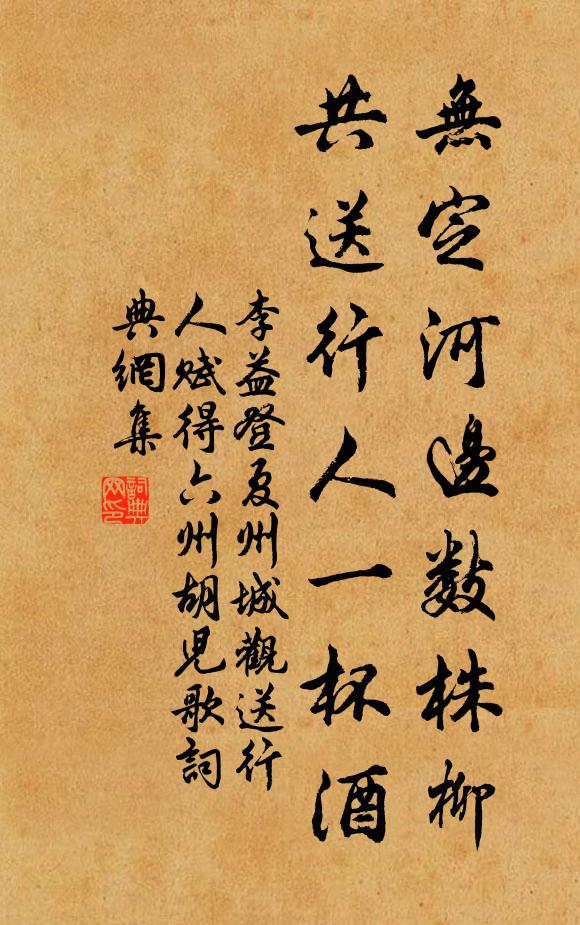 無定河邊數株柳
共送行人一杯酒
李益登夏州城觀送行
人賦得六州胡兒歌詞
典網集
詞典
网印